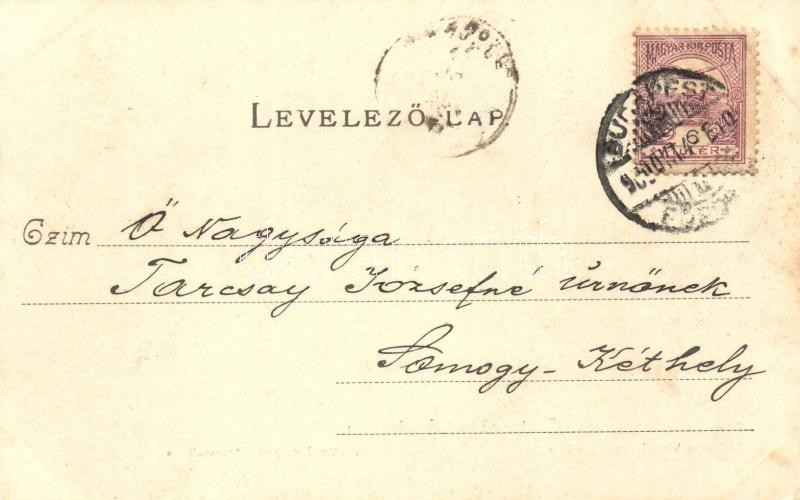 MAGYAR KIR. POSTA
BUDAPEST
LEVELEZŐ LAP
Czim Ő Nagysága
Tarcsay Józsefné úrnőnek
Somogy-Kéthely